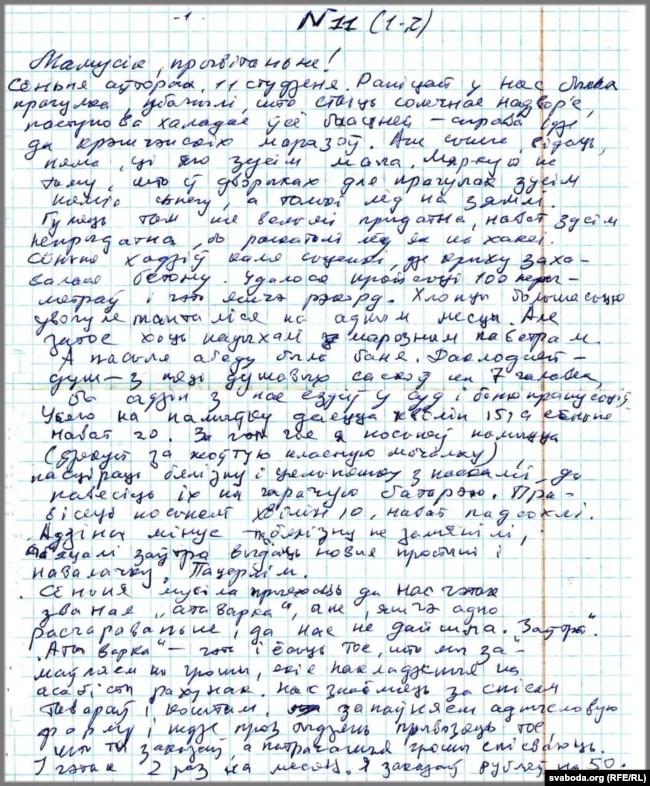 -1 N11 (1-2)
Мамусік, прывітаньне!
Сёньня аўторак, 11 студзеня. Раніцай у нас была
прагулка, убачылі, што стаіць сонечнае надвор'е,
паступова халадае ўсё бальшей – справа ідзе
да хрэшчэнскіх маразоў. Але сьнегу, відаць,
няма, ці яго зусім мала. Мяркую па
таму, што ў дворыках для прагулак зусім
няма сьнегу, а толькі лёд на зямлі.
Гуляць там не вельмі прыдатна, нават зусім
непрыдатна, бо раскаталі лёд як на хакеі.
Сёньня хадзіў каля сьценкі, дзе крыху заха-
валася бетону. Удалося прайсьці 100
метраў і гэта яшчэ рэкорд. Хлопцы большасьцю
увогуле танталіся на адным месцы. Але
затое хоць надыхалі марозным паветрам.
А пасьля абеду была баня. Дакладней –
душ – з пяці душавых саскоў на 7 чалавек,
бо адзін з нас ездіў у суд і баню прапусьціў.
Усяго на памыўку даецца хвілін 15, а сёньня
нават 20. За гэты час я пасьпеў памыцца
(дзякуй за жоўтую класную мачалку),
пасціраць бялізну і цельняшку з наскамі, ды
павесіць іх на гарачую батарэю. Пра-
віселі яны хвілін 10, нават падсохлі.
Адзіны мінус – бялізну не замянілі,
абяцалі заўтра выдаць новыя прасьціны і
навалачку. Пацерпім.
Сёньня мусіла прыехаць да нас гэтак
званая „атаварка“, але, яшчэ адно
расчараваньне, да нас не дайшла. „Заўтра“.
„Атаварка“ – гэта і ёсьць тое, што мы за-
маўляем на грошы, якія пакладзеныя на
асабісты рахунак. Нас знаёмяць са сьпісам
тавараў і коштам. запаўняем адмысловую
форму і недзе праз тыдзень прывозяць тое
што ты заказаў, а патрачаныя грошы сьпісваюць.
І гэтак 2 раз на месяц. Я заказаў рублёў на 50.
svaboda.org (RFE/RL)